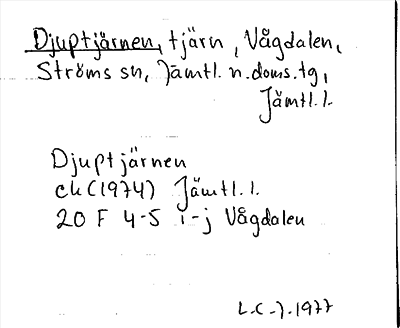 Djuptjärnen, tjärn, Vågdalen,
Ströms sn, Jämtl. n. doms. tg,
Jämtl. l.
Djuptjärnen
ek (1974) Jämtl. l.
20 F 4-5 i-j Vågdalen
L-C-J-1977